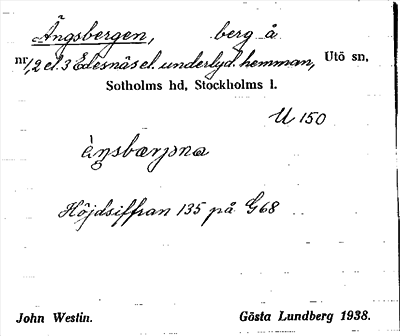 Ängsbergen, berg å
nr 1, 2 el. 3 Edesnäs el. underlyd. hemman, Utö sn,
Sotholms hd, Stockholms l.
U 150
Höjdsiffran 135 på G68
John Westin. Gösta Lundberg 1938.